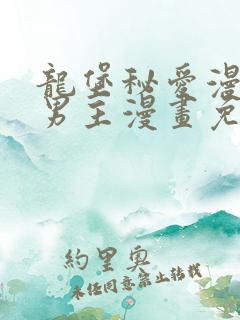 龍堡秘愛漫
男主漫畫免
約里奧
未經同意禁止轉載